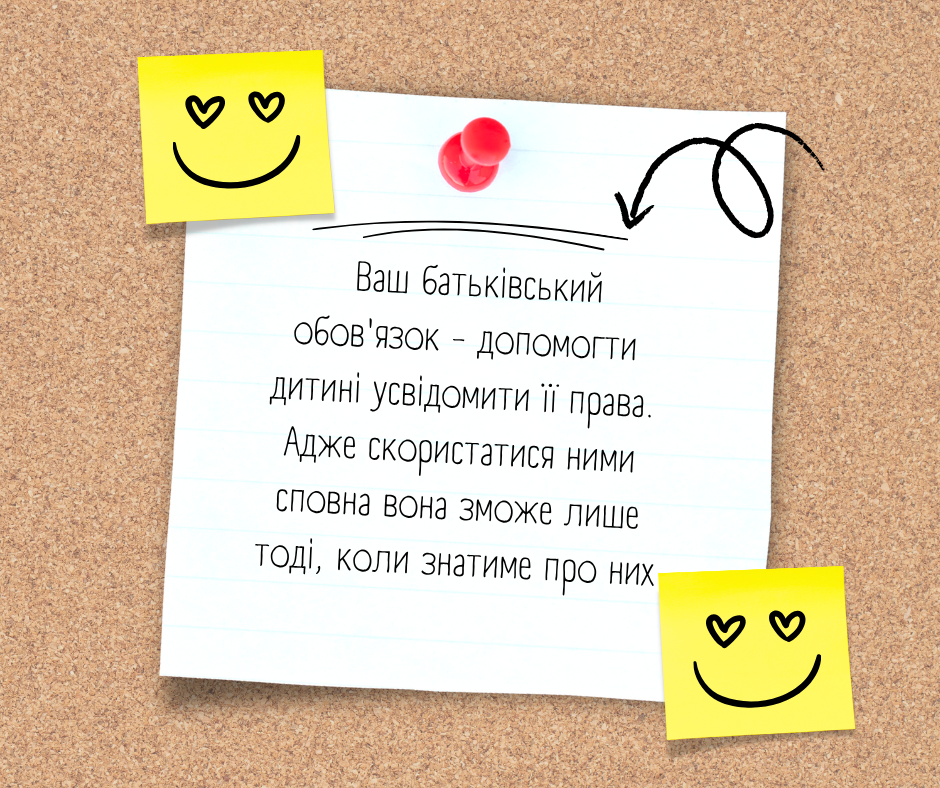 Ваш батьківський
обов'язок - допомогти
дитині усвідомити її права.
Адже скористатися ними
сповна вона зможе лише
тоді, коли знатиме про них